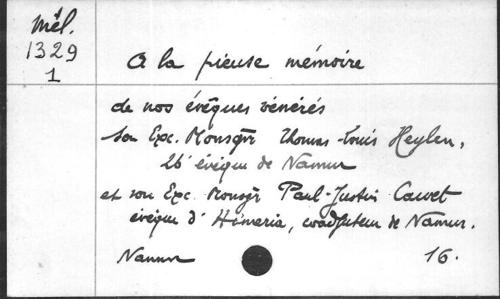 Mél.
1329
1
A la pieuse mémoire
de nos évêques vénérés
Son Exc. Monsgr Thomas-Louis Heylen,
26e évêque de Namur
et son Exc. Monsgr Paul-Justin Cawet
évêque d'Himeria, coadjuteur de Namur.
Namur 16.